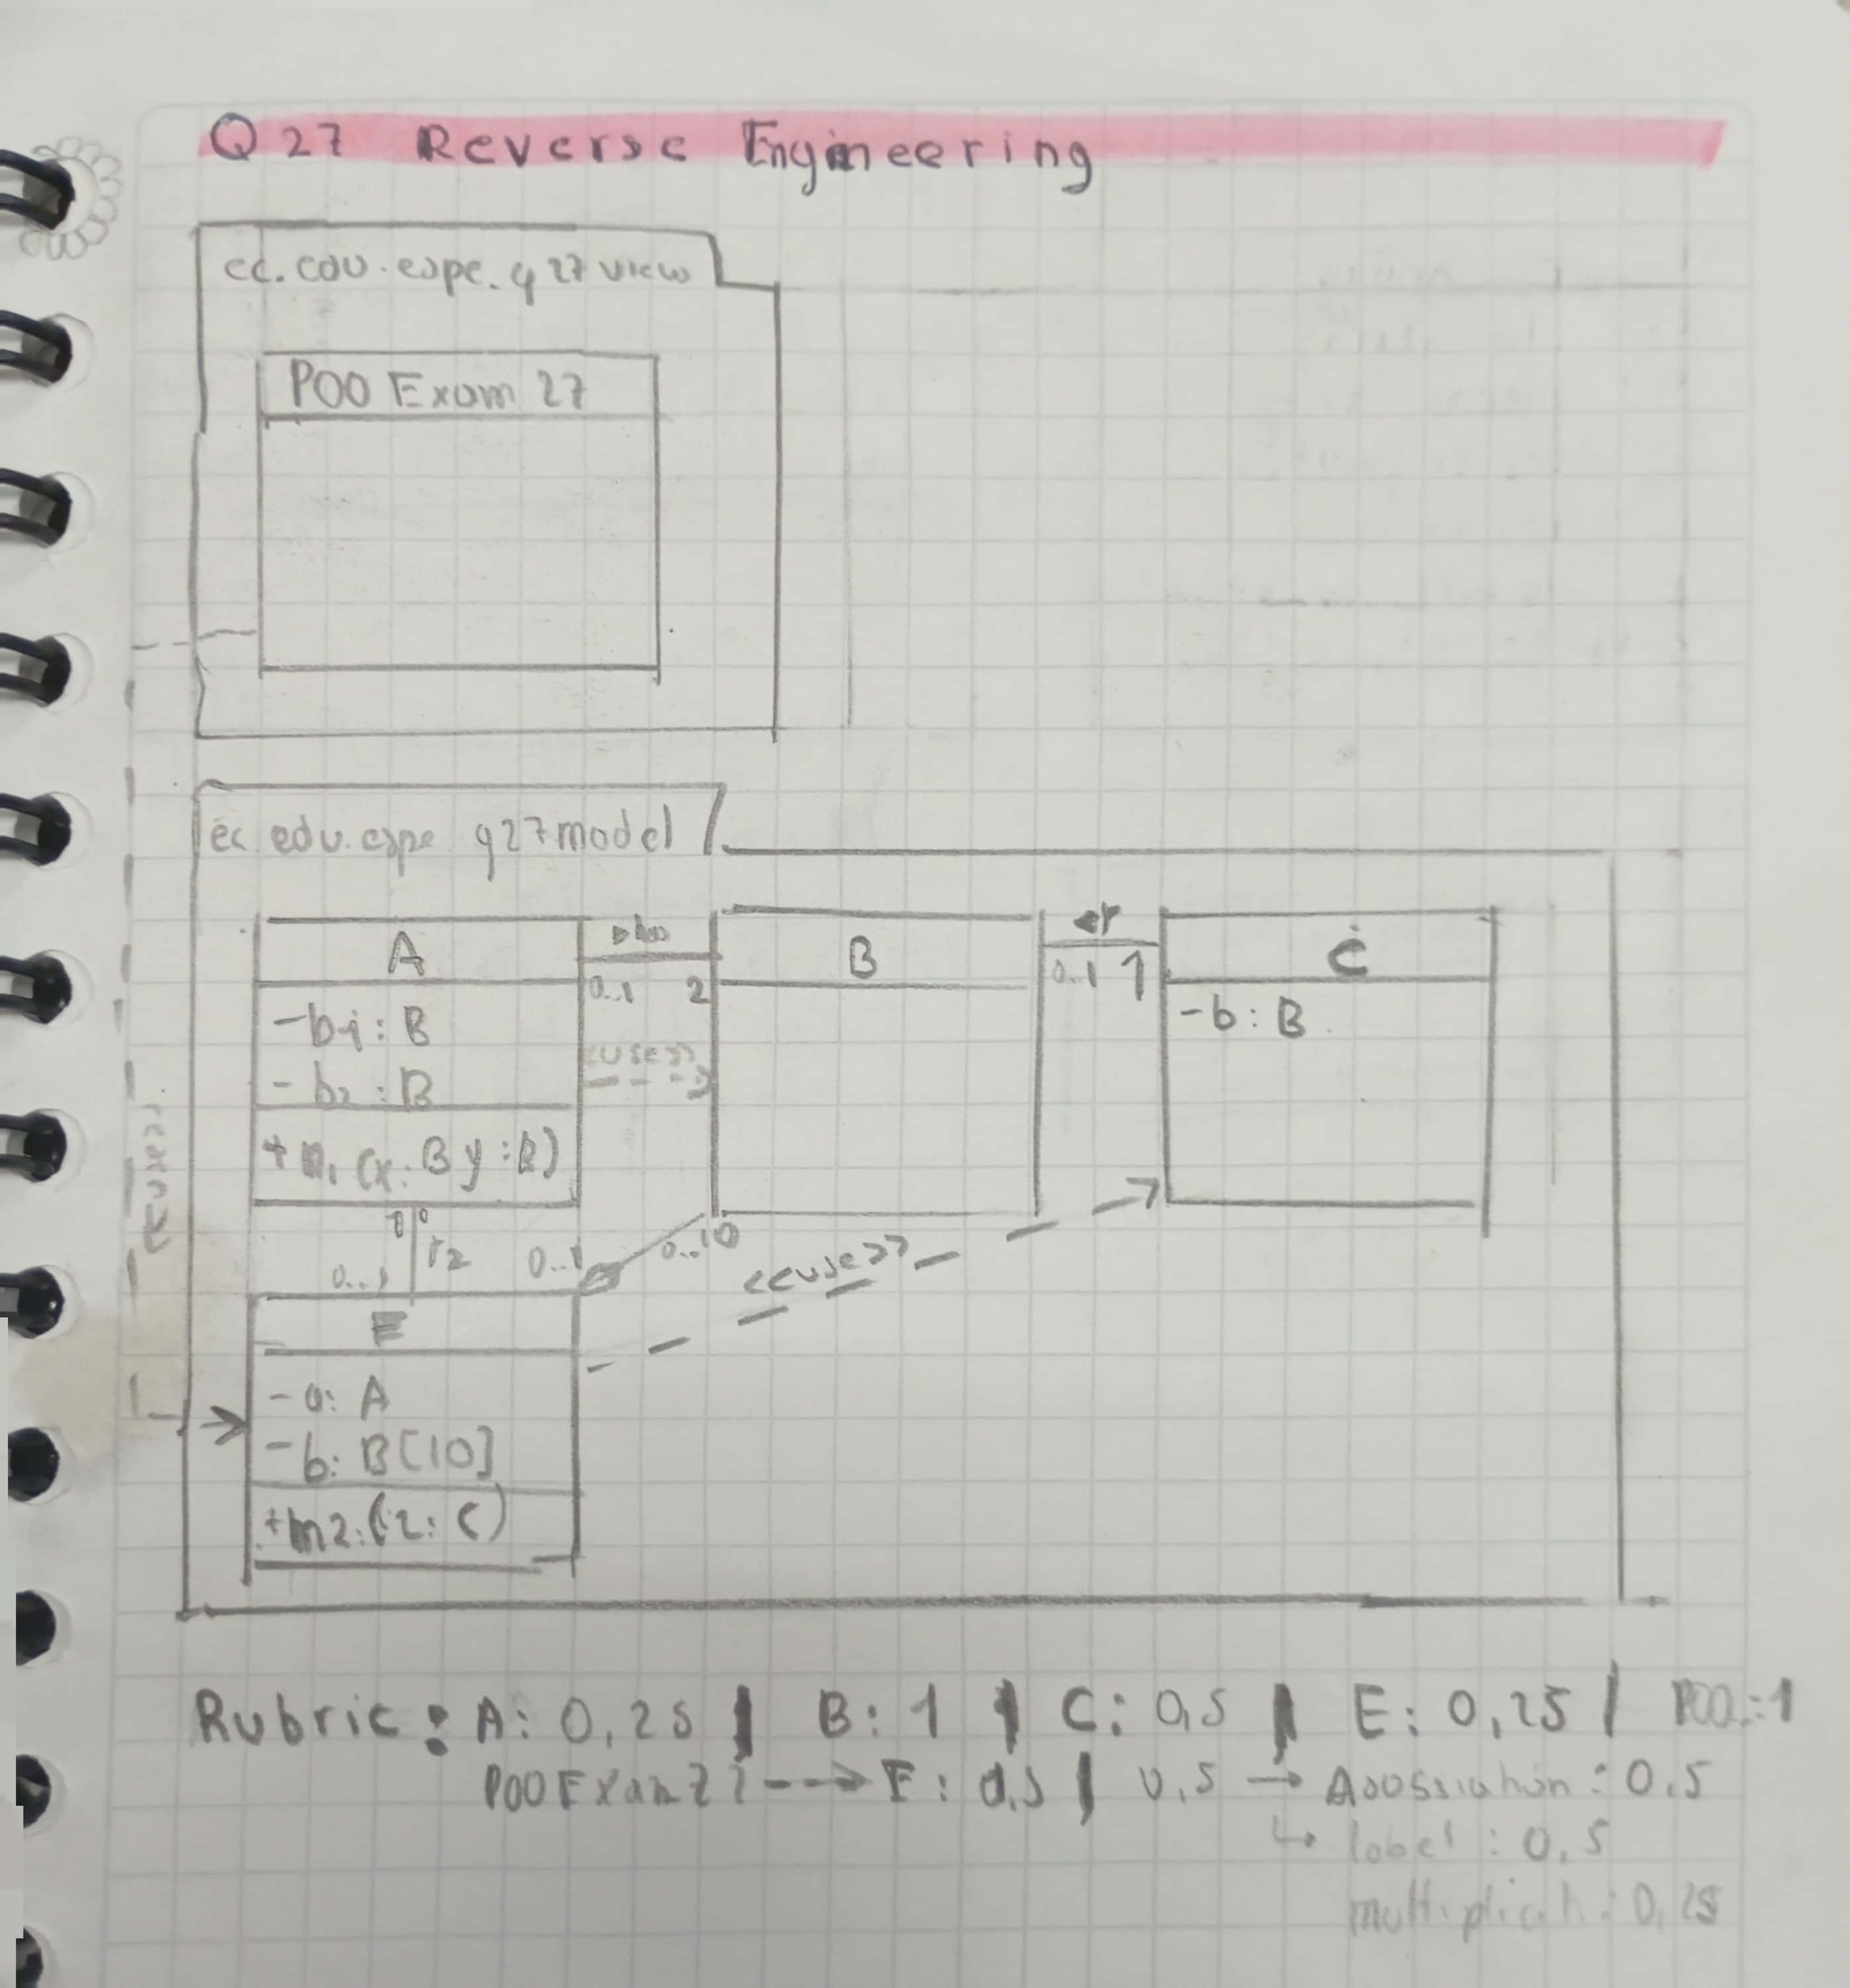 Q 27 Reverse Engineering
ec.edu.espe.q27 view
POO Exam 27
ec edu.espe q27model
A
- b1 : B
- b2 : B
+ m1 (x: B y: B)
0..1 2
<<use>>
B
0..1 1
C
- b : B
<<use>>
1
r2
0..1
0..1
0..10
<<use>>
E
- a: A
- b: B[10]
+m2:(z: C)
Rubric: A: 0,25 | B: 1 | C: 0,5 | E: 0,25 | POO.:1
POOExam27 --→ E: 0,5 | 0,5 → Asossiation: 0.5
↳ label : 0,5
: 0,25